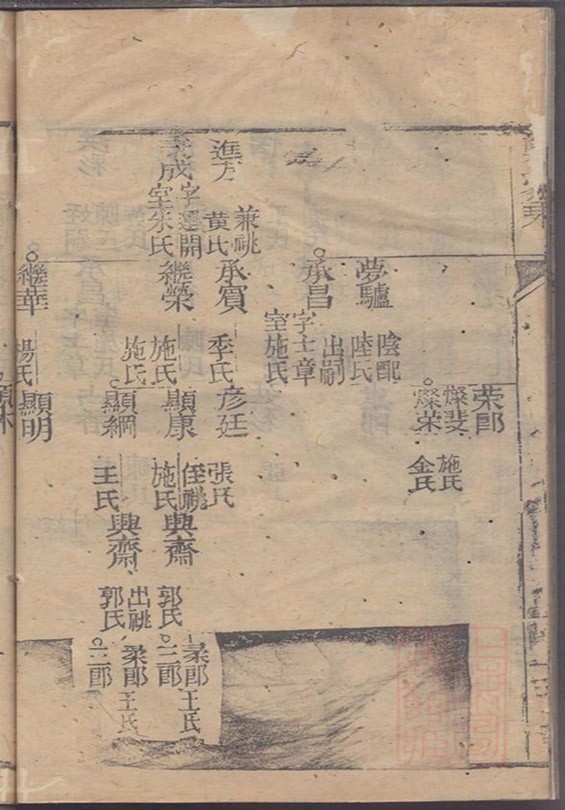 荣郎
燦斐
施氏
燦荣
金氏
夢驢
陰配
陸氏
承昌
出嗣
字士章
室施氏
進方
兼祧
黄氏
承賓
季氏
彦廷
張氏
成
字選開
室朱氏
繼榮
施氏
施氏
顯康
侄祧
施氏
興齋
郭氏
郎
王氏
三郎
顯綱
王氏
興齋
出祧
郭氏
郎
王氏
二郎
繼華
楊氏
顯明